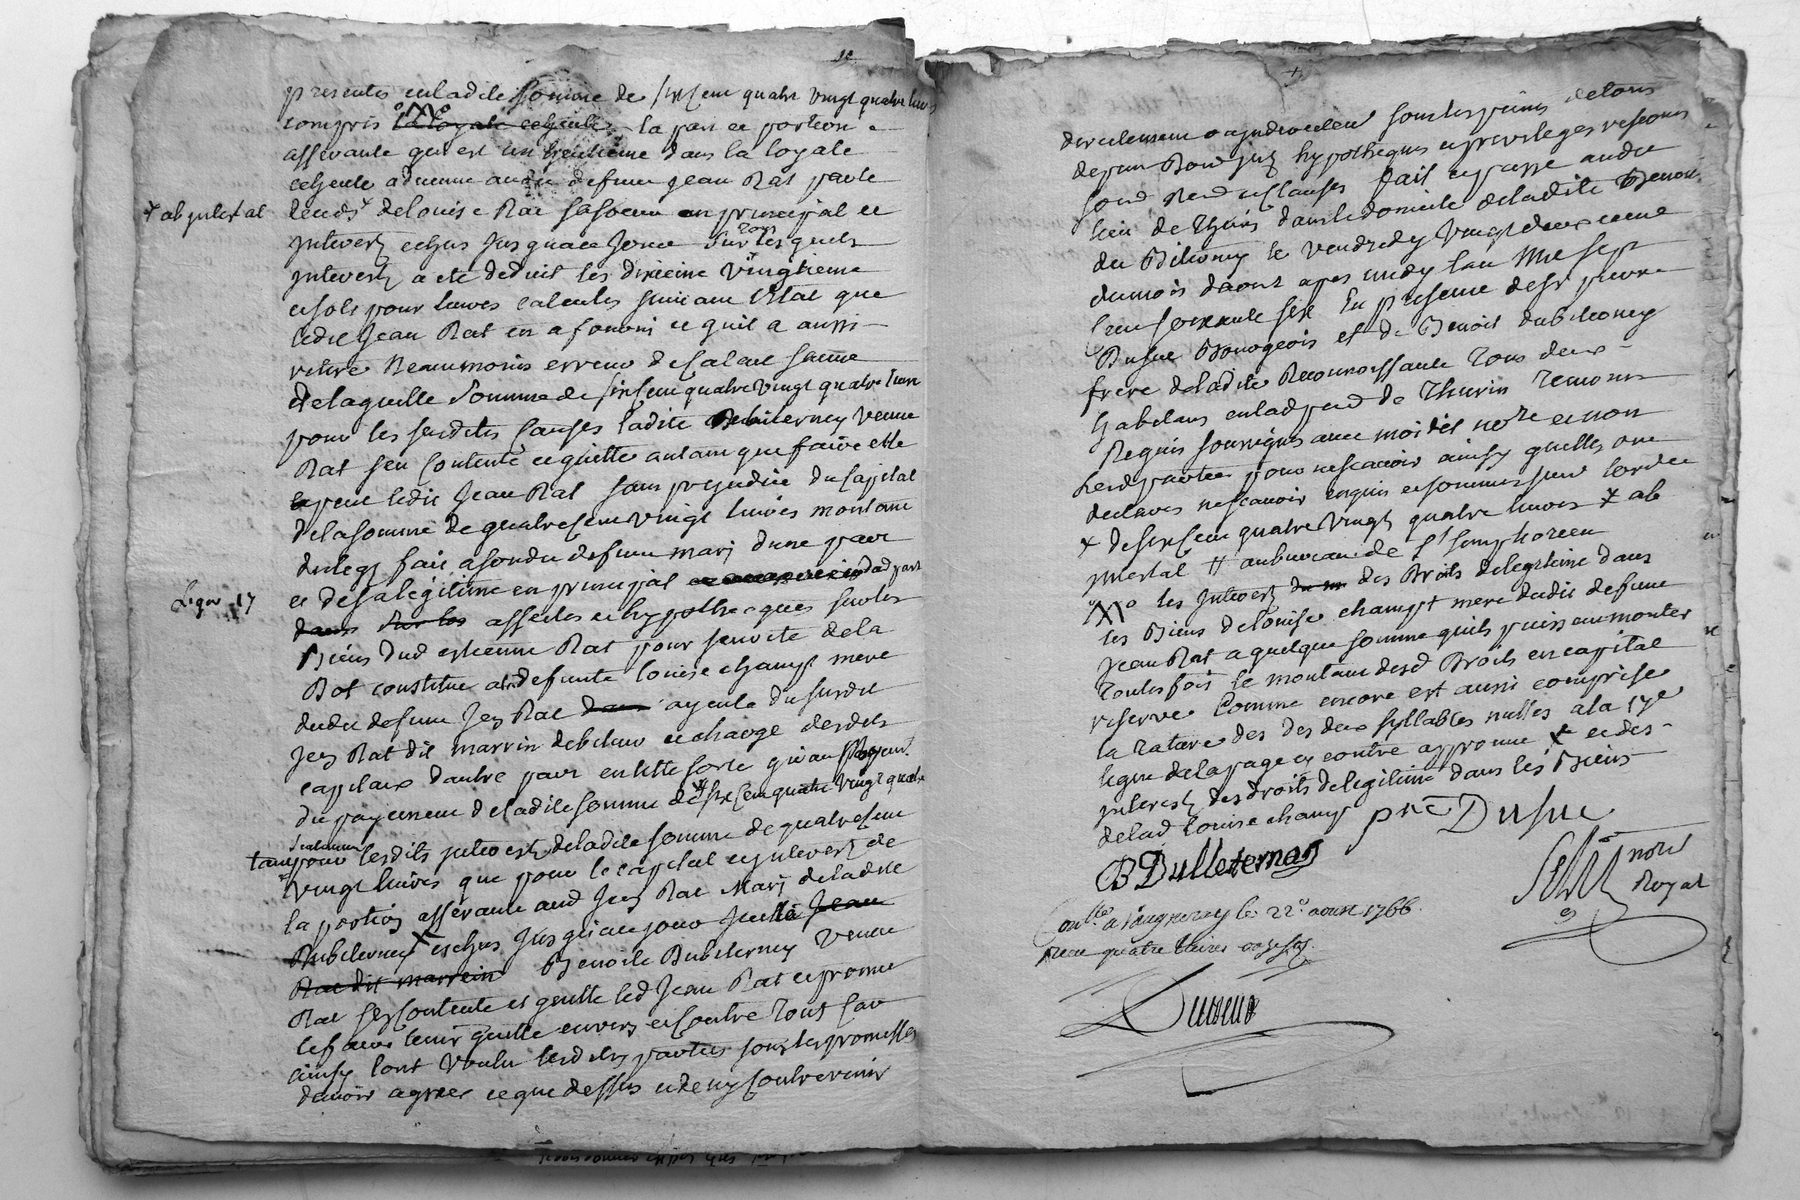 presentes enladite somme de sixcent quatre vingt quatre livres
compris la part et portion
afferante qui est un huitieme dans la loyale
escheute advenue audit defunt jean Rat par le
deceds x delouise Rat sasoeur en principal et
x ab intestat
interest echus jusquace jour sur tous lesquels
interest a été deduit les dixieme vingtieme
et sols pour livres calculés suivant l'Etat que
ledit jean Rat en a fourni et quil a aussi
retiré neanmoins erreur de calcul sauve
delaquelle somme de sixcent quatre vingt quatre livres
pour les susdites causes ladite Dubiterney veuve
Rat sen contente et quitte autant que faire elle
peut ledit jean Rat sans prejudice du capital
delasomme de quatrecent vingt livres montant
dulegs fait asondit defunt mari dune part
et desalégitime en principal dad part
Ligne 17
dans sur les affectés et hypothecqués sur les
Biens dud estienne Rat pour sureté dela
Dot constitué aladefunte louise champt mere
dudit defunt jean Rat dans ayeule du susdit
jean Rat dit marrin debiteur et chargé desdits
capitaux dautre part entelle sorte quau moyen
du payement deladite somme de sixcent quatre vingt quatre
tant pour lesdits interest deladite somme de quatrecent
vingt livres que pour le capital et interest de
la portion afferante aud jean Rat mari deladite
Dubiterney x echus jusquaujour jean
Rat dit marrein Benoite Dubiterney veuve
Rat sen contente et quitte led jean Rat et promet
le faire tenir quitte envers et contre tous car
ainsy l'ont voulu lesdites parties sous les promesses
davoir agreer ce que dessus et deny contrevenir
directement ou indirectement sous les peines detous
depens Bourjus hypotheques et privileges
soud Rend et clauses fait et passé audit
lieu de Thurin dans le domicile deladite Benoite
du Bilterney le vendredy vingt deux
dumois daoust apres midy l'an mil sept
cent soixante six En presence de sr pierre
Dusuc Bourgeois et de Benoit dubiterney
frere deladite Reconnoissante tous deux
habitans enlad par de Thurin temoins
Requis soussignés avec moi dit nore et non
lesd parties pour nescavoir ainsy quelles ont
declarés nescavoir enquis et sommés suiv lordce
x de sixcent quatre vingt quatre livres x ab
intestat # aubureau de St Simphorien
les interest des Droits delegitime dans
les Biens delouise champt mere dudit defunt
jean Rat a quelque somme quils puissent monter
toutes fois le montant desd Droits en capital
reservé comme encore est aussi comprise
la rature des des deux syllables nulles a la 17e
ligne delapage cy contre approuvé x et des
interest des droits delegitime dans les Biens
delad louise champt pre Dusuc
B Dulleternay
nore
Royal
Conllé a vaugneray le 22e aoust 1766.
Receu quatre livres